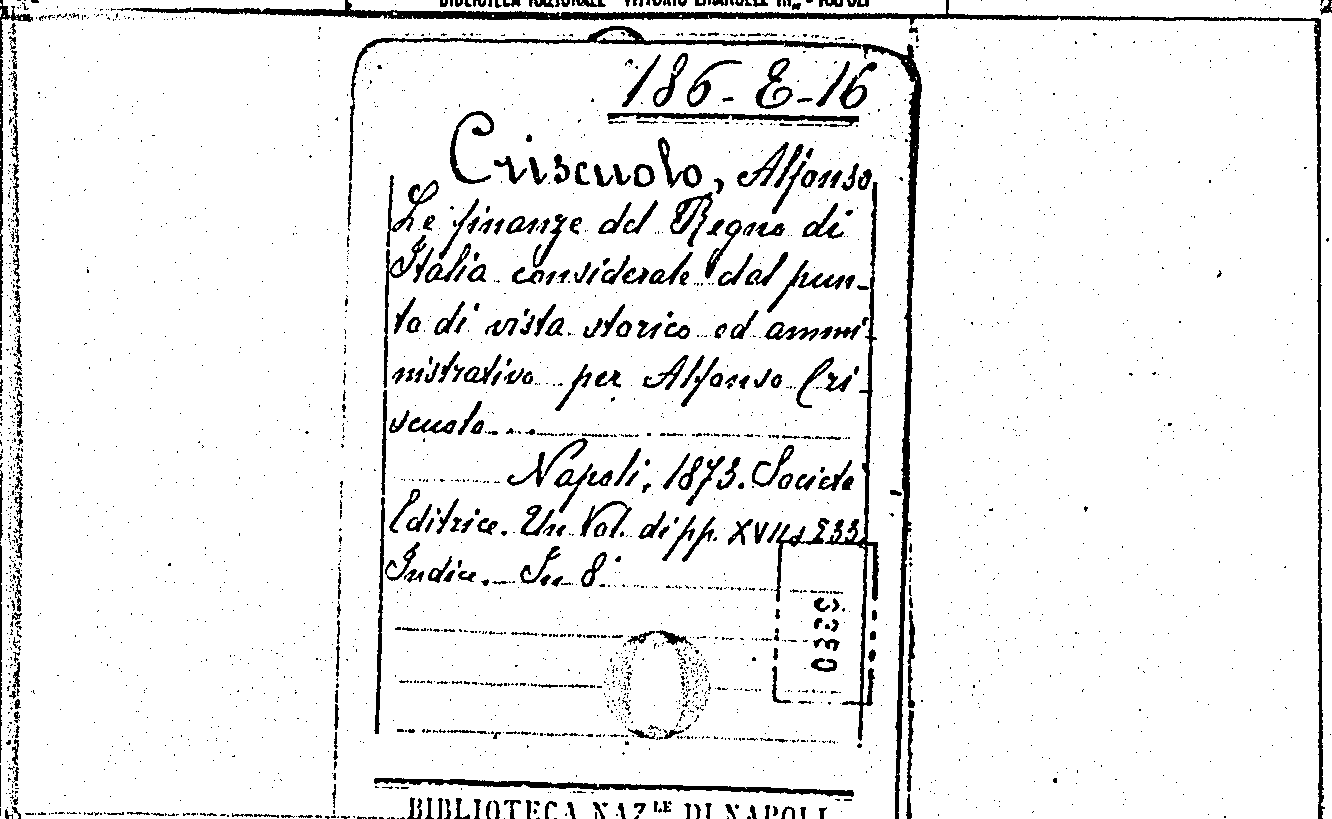 BIBLIOTECA NAZIONALE "VITTORIO EMANUELE III" - NAPOLI
186-E-16
Criscuolo, Alfonso
Le finanze del Regno di
Italia considerate dal pun-
to di vista storico ed ammi-
nistrativo per Alfonso Cri-
scuolo...
Napoli, 1873. Società
Editrice. Un Vol. di pp. XVII, 233.
Indice. In 8°
BIBLIOTECA NAZ.LE DI NAPOLI